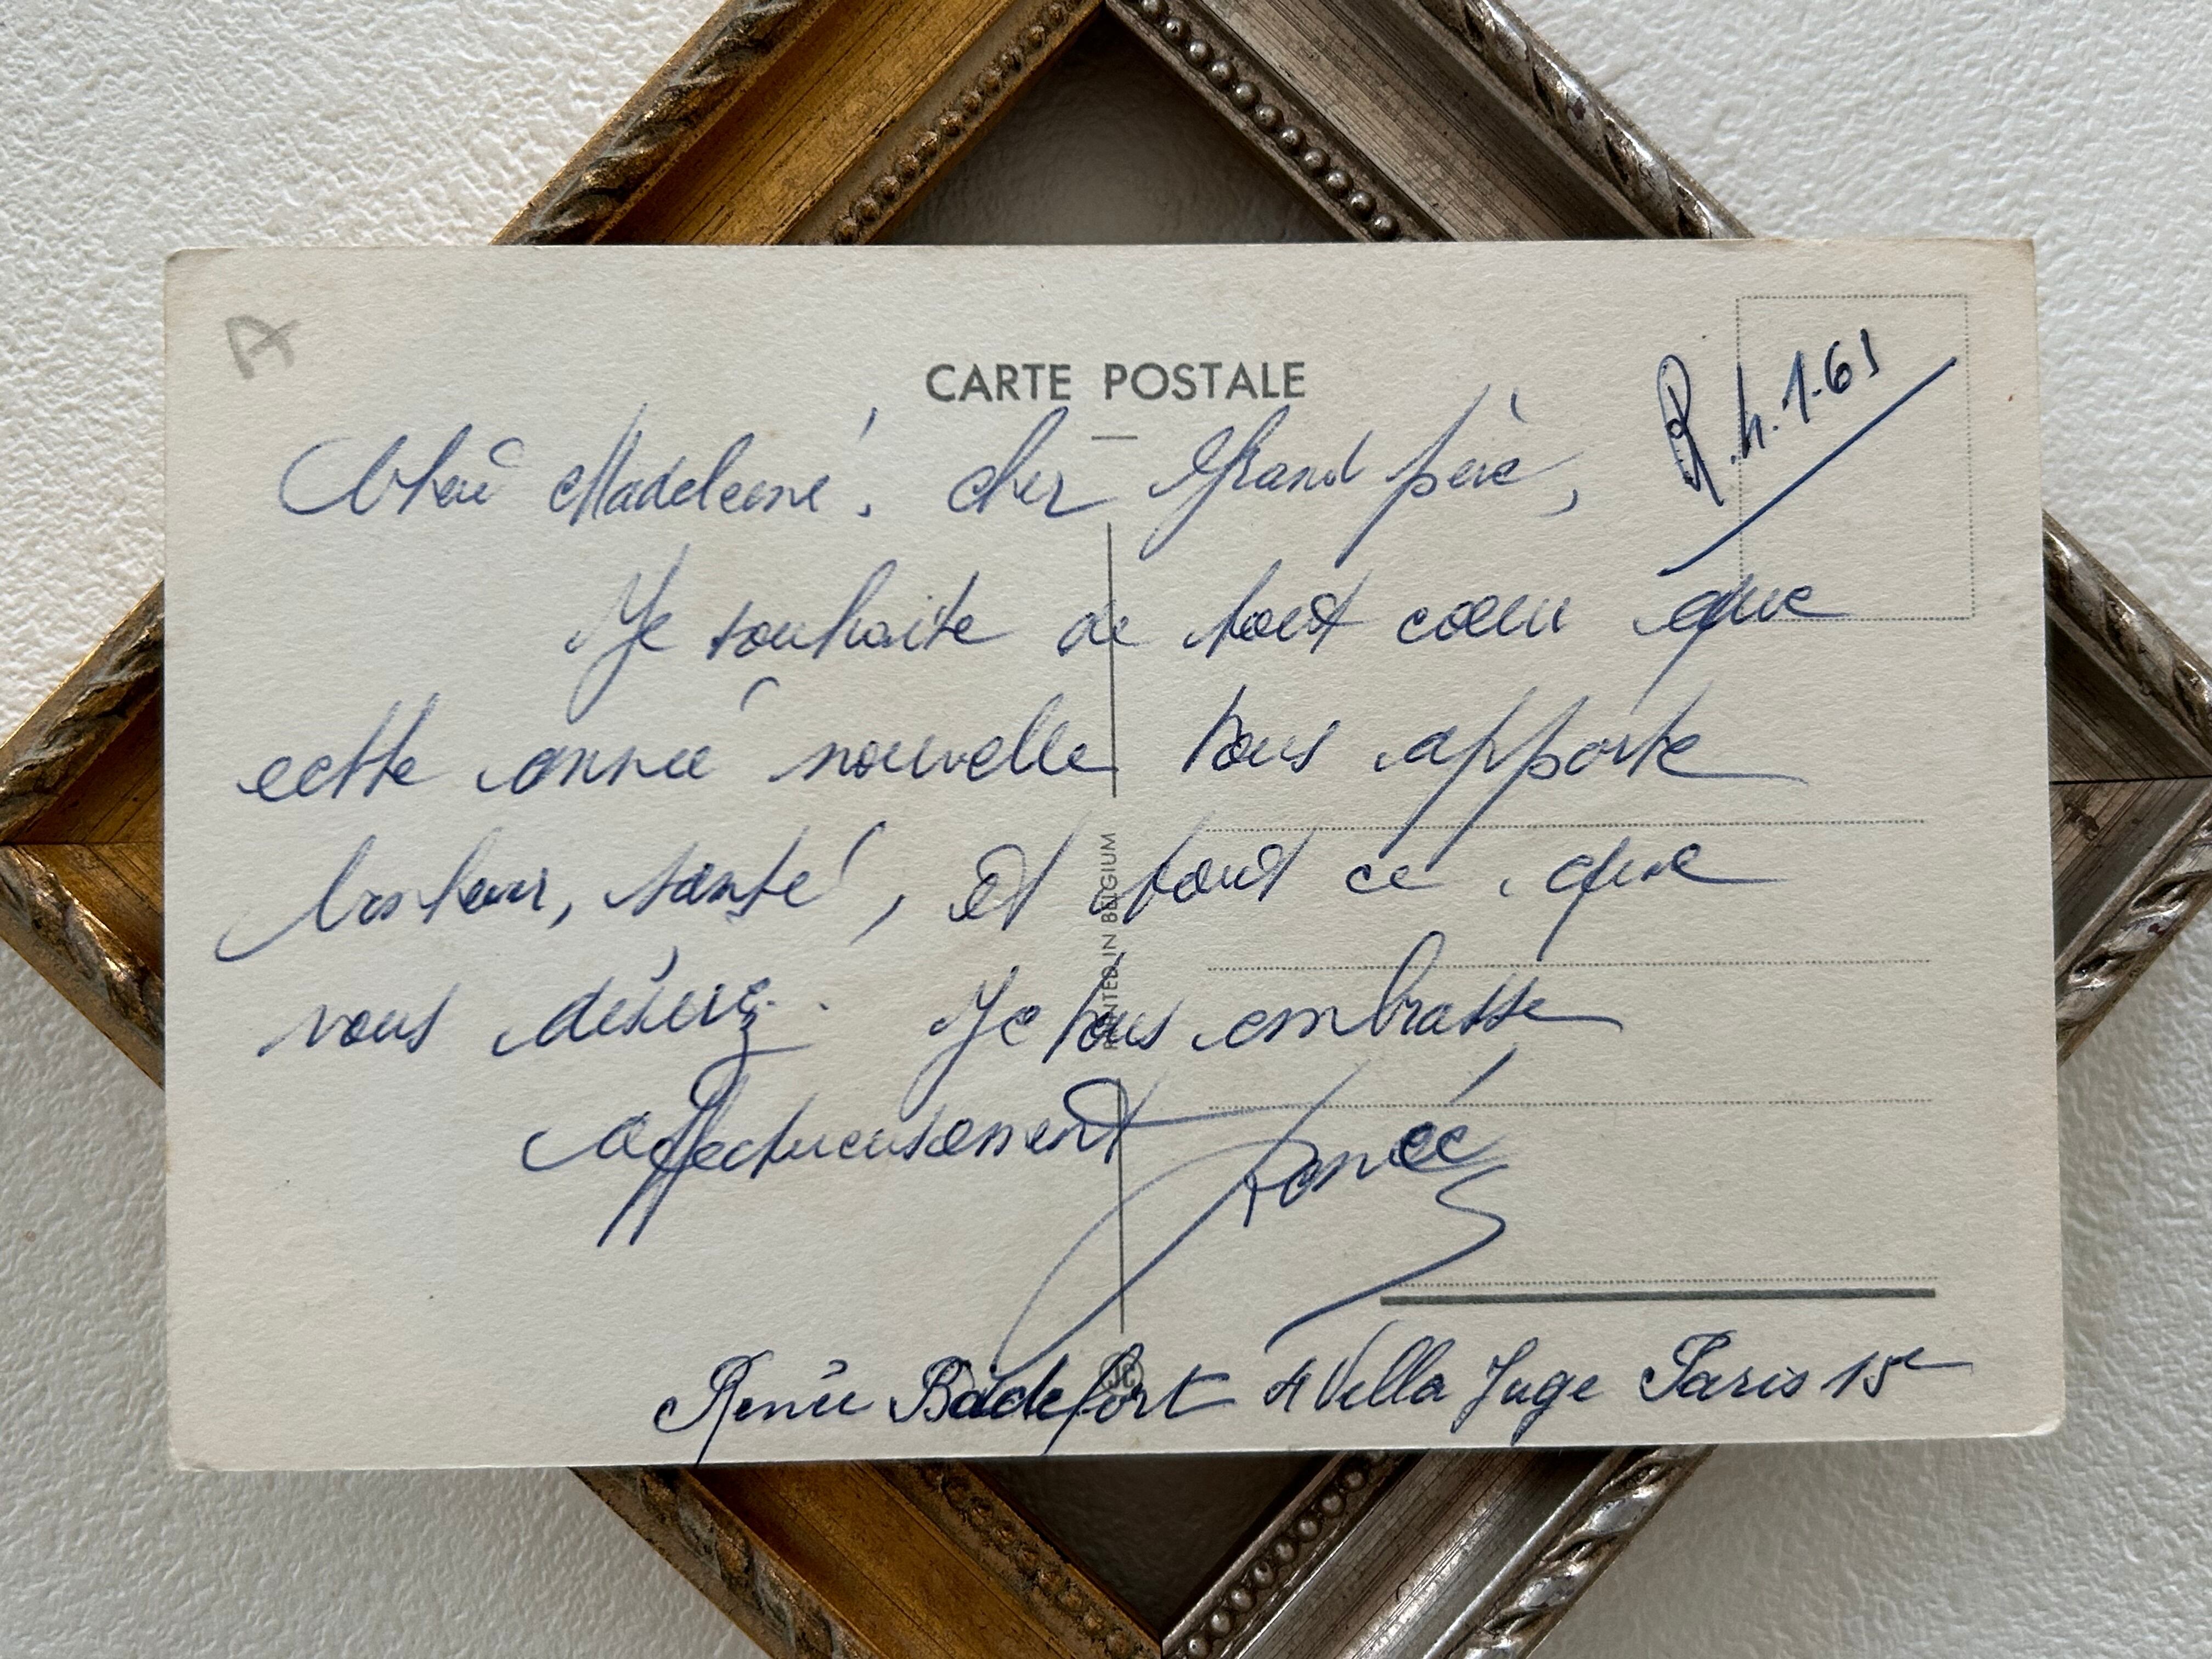 A
CARTE POSTALE
R. 4.1.61
Chère Madeleine, cher Grand père,
Je souhaite de tout cœur que
cette année nouvelle vous apporte
bonheur, santé, et tout ce que
vous désirez. Je vous embrasse
affectueusement Renée
PRINTED IN BELGIUM
JC
Renée Badefort 4 Villa Juge Paris 15e